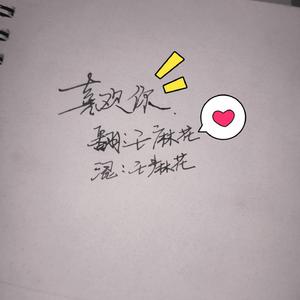 喜欢你
翻:王麻花
混:王麻花